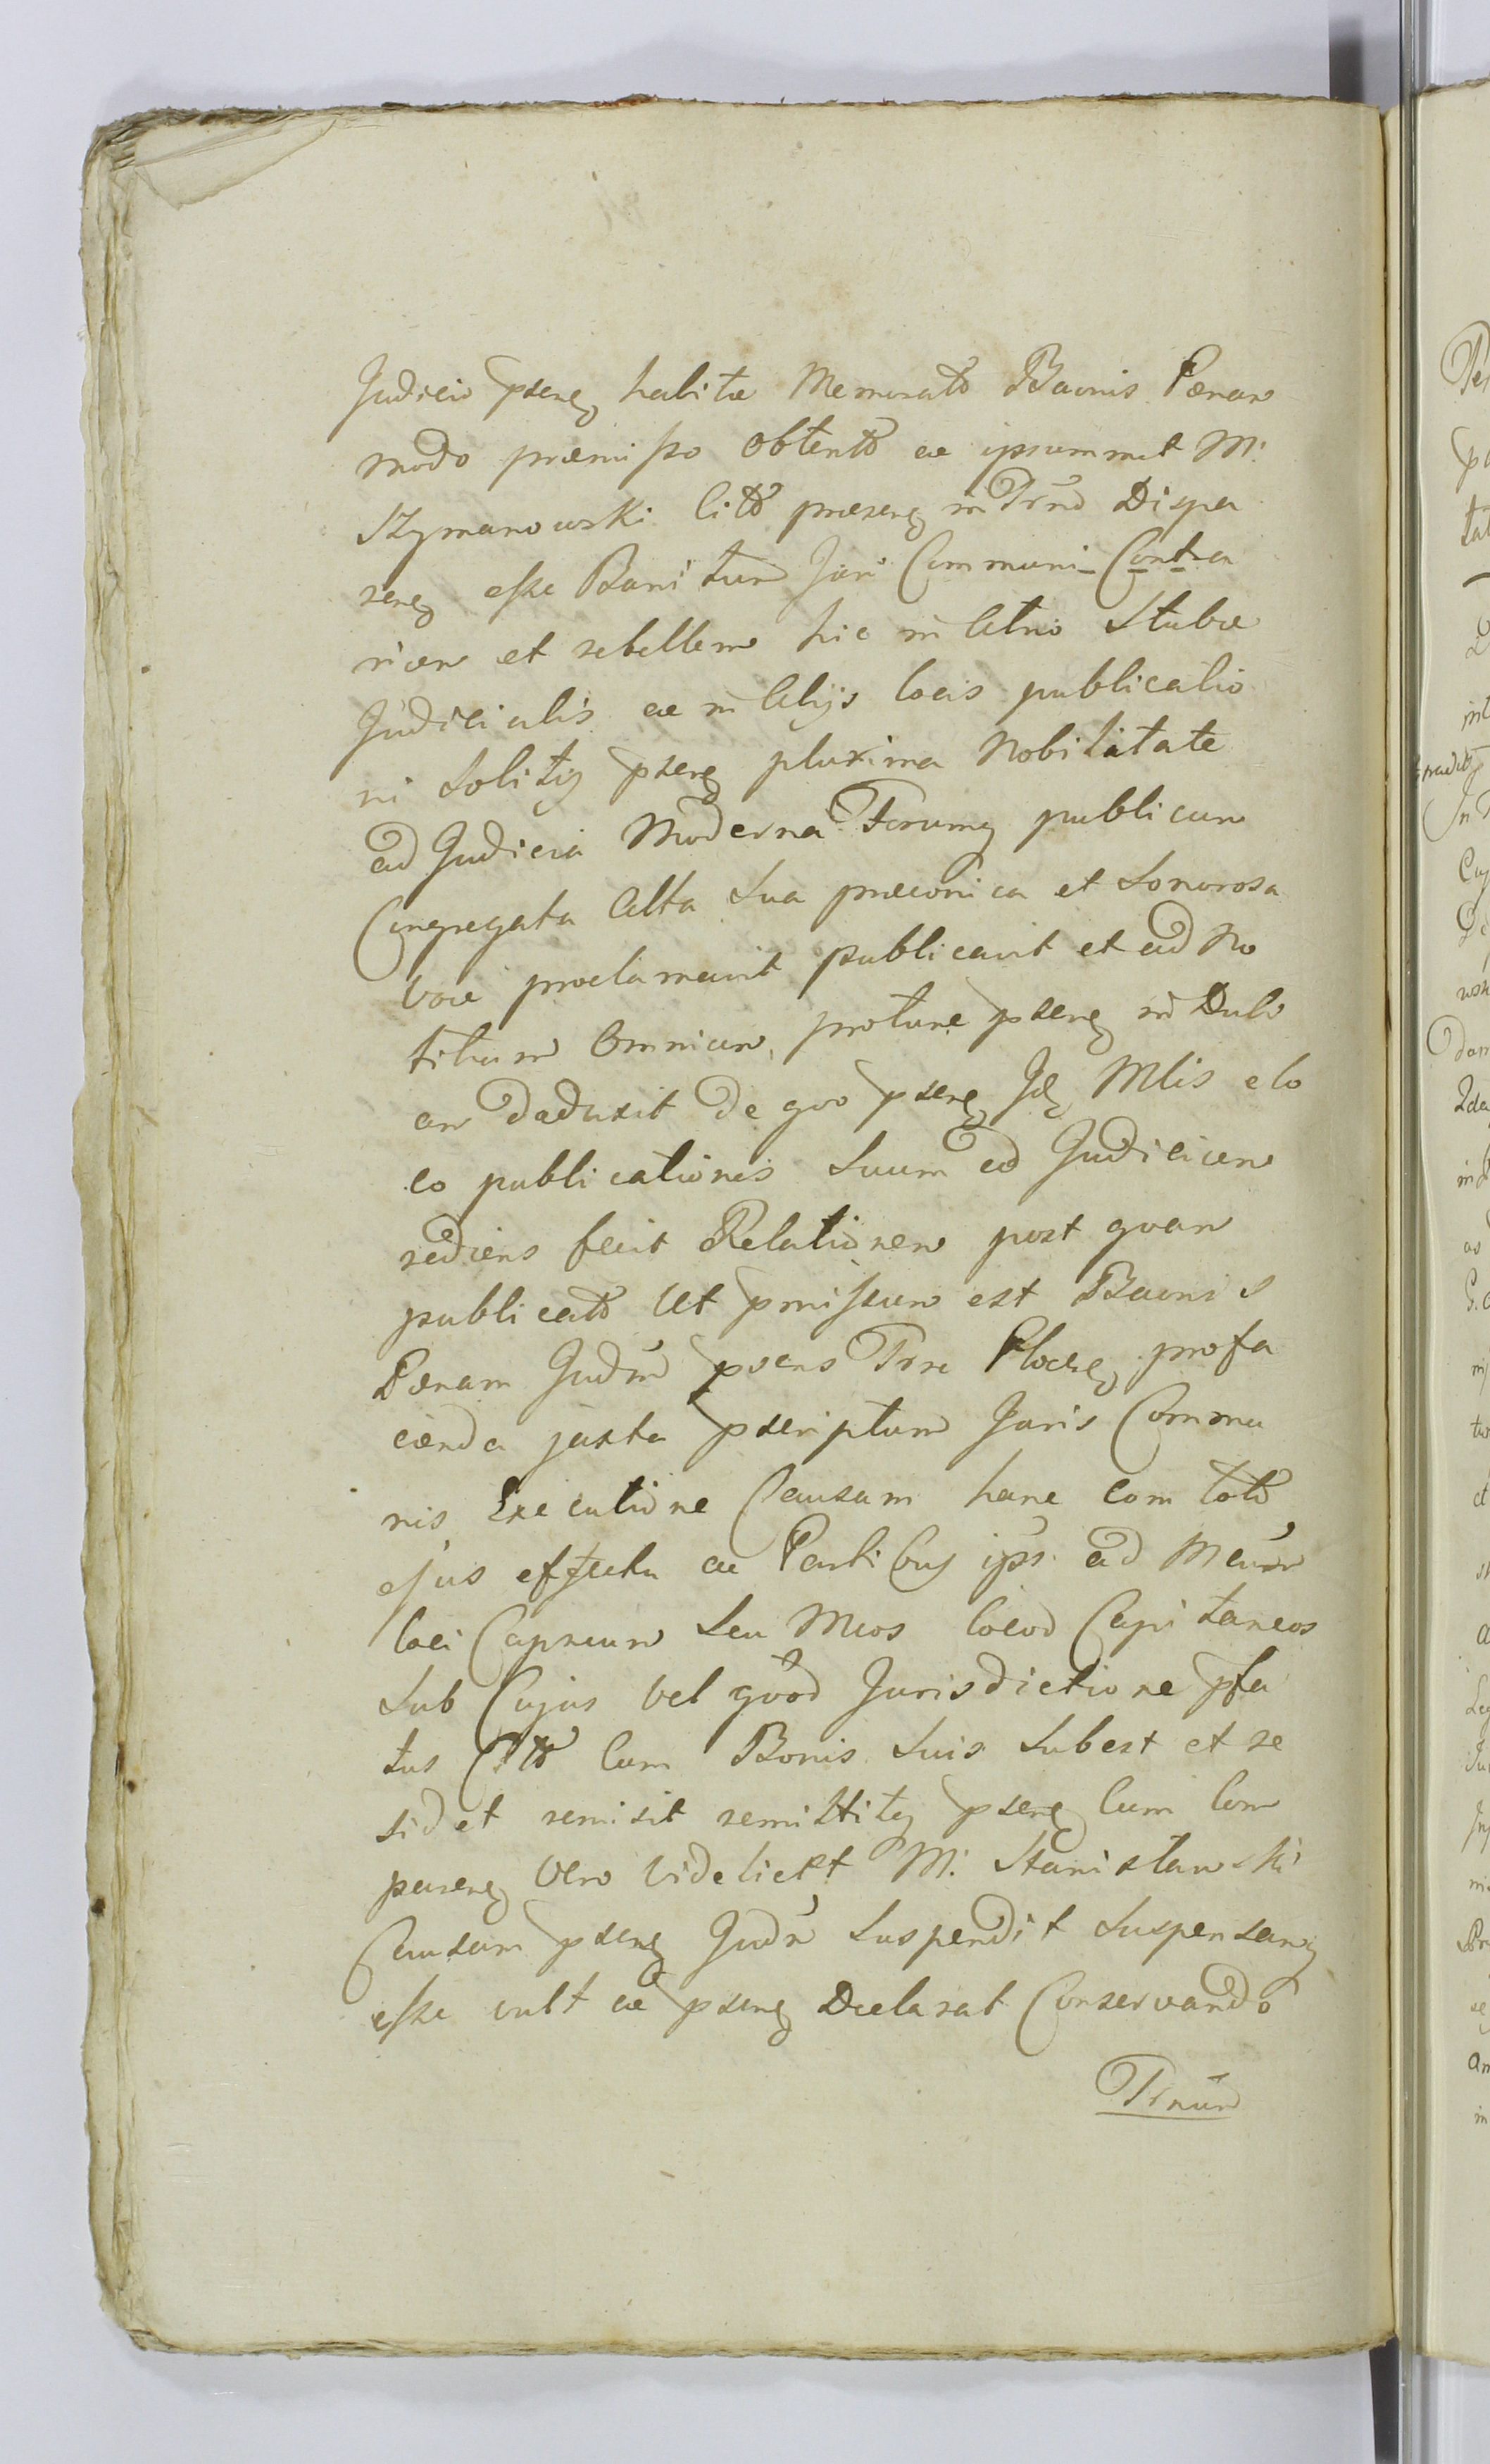 Judicio psenę habitæ Memorato Baonis Pœnam
modo præmisso obtento ac ipsummet M.
Szymanowski Citto præsenę in Trno Dispa
renę esse Banitum Juri Communi Contra
rium et rebellem hic in Atrio Stubæ
Judicialis ac in Alijs locis publicatio
ni solitę psenę plurima Nobilitate
ad Judicia Moderna Forumę publicum
Congregata Alta Sua præconica et Sonorosa
Voce proclamavit publicavit et ad No
titiam Omnium protunc psenę in Dubi
um Daduxit de quo psenę Jdę Mlis e lo
co publicationis Suum ad Judicium
rediens fecit Relationem post quam
publicato Ut pmissum est Baonis
Pœnam Judm psens Trre Plocę profa
cienda juxta pscriptum Juris Commu
nis Executione Causam hanc com toto
ejus effectu ac Partibus ips. ad Meum
loci Capneum Seu Mcos locod Capitaneos
Sub Cujus vel quod Jurisdictione pfa
tus Citto Cum Bonis Suis Subest et re
sidet remisit remittitę psenę Cum Com
parenę Vero Videlicet M. Stanisławski
Causam psenę Judm Suspendit Suspensamę
esse vult ac psenę Declarat Conservando
Trnum